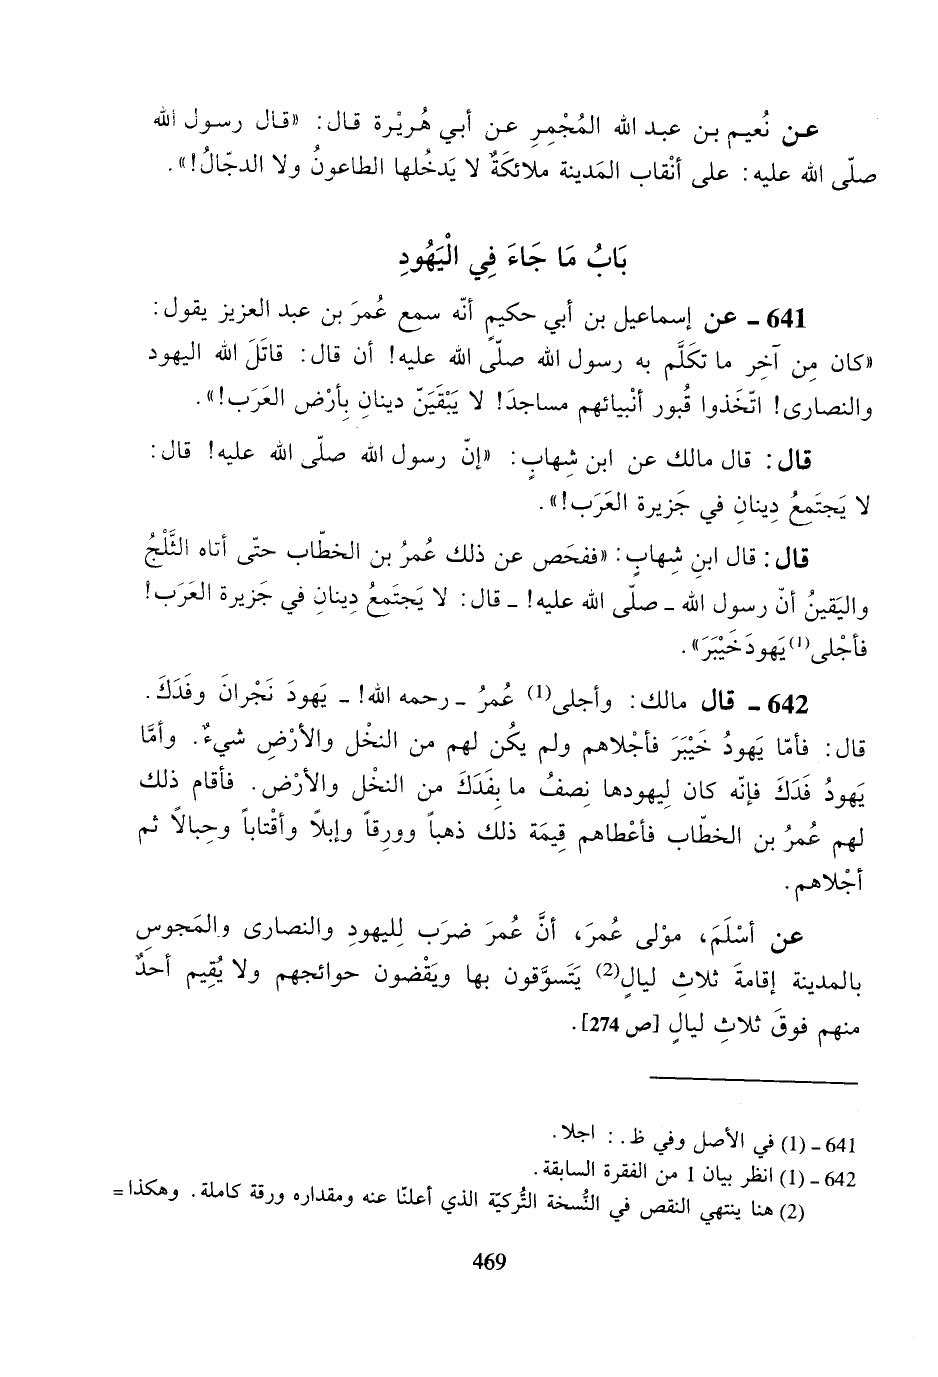 عن نُعيم بن عبد الله المُجْمِرِ عن أبي هُريْرة قال: «قال رسول الله
صلّى الله عليه: على أنْقاب المَدينة ملائكَةٌ لا يَدخُلها الطاعونُ ولا الدجّالُ!».
بَابُ مَا جَاءَ فِي الْيَهُودِ
641 ـ عن إسماعيل بن أبي حكيمٍ أنّه سمع عُمرَ بن عبد العزيز يقول:
«كان مِن آخِر ما تكَلَّم به رسول الله صلّى الله عليه! أن قال: قاتَلَ الله اليهود
والنصارى! اتّخَذوا قُبور أنْبيائهم مساجدَ! لا يَبْقَيَنّ دينانِ بِأرْض العَرَب!».
قال: قال مالك عن ابن شِهابٍ: «إنّ رسول الله صلّى الله عليه! قال:
لا يَجتَمعُ دِينانِ في جَزيرة العَرَب!».
قال: قال ابن شِهابٍ: «ففحَص عن ذلك عُمرُ بن الخطّاب حتّى أتاه الثَّلْجُ
واليَقينُ أنّ رسول الله ـ صلّى الله عليه! ـ قال: لا يَجتَمعُ دِينانِ في جَزيرة العَرَب!
فأجْلى(1) يَهودَ خَيْبَرَ».
642 ـ قال مالك: وأجلى(1) عُمرُ ـ رحمه الله! ـ يَهودَ نَجْرانَ وفَدَكَ.
قال: فأمّا يَهودُ خَيْبَرَ فأجْلاهم ولم يكُن لهم من النخْل والأرْضِ شيءٌ. وأمَّا
يَهودُ فَدَكَ فإنّه كان لِيهودها نِصفُ ما بِفَدَكَ من النخْل والأرْض. فأقام ذلك
لهم عُمرُ بن الخطّاب فأعْطاهم قِيمَة ذلك ذهباً وورِقاً وإبلاً وأقْتاباً وحِبالاً ثم
أجْلاهم.
عن أسْلَمَ، موْلى عُمرَ، أنَّ عُمرَ ضرَب لِليهودِ والنصارى والمَجوسِ
بالمدينة إقامةَ ثلاثِ ليالٍ(2) يَتَسوَّقون بها ويَقْضون حوائجهم ولا يُقيم أحدٌ
منهم فوقَ ثلاثِ ليالٍ [ص 274].
641 ـ (1) في الأصل وفي ظ. : اجلا.
642 ـ (1) انظر بيان 1 من الفقرة السابقة.
(2) هنا ينتهي النقص في النُّسخة التُّركيّة الذي أعلنّا عنه ومقداره ورقة كاملة. وهكذا =
469